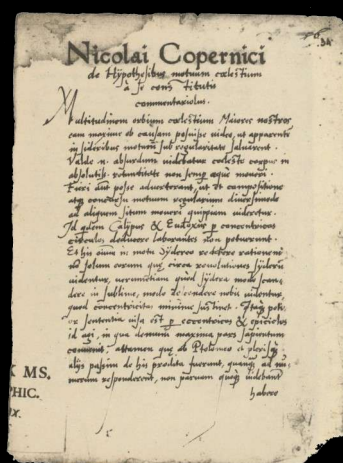 34
Nicolai Copernici
de Hypothesibus motuum cœlestium
à se constitutis
commentariolus.
Multitudinem orbium cœlestium Maiores nostros
eam maxime ob causam posuisse video, ut apparentem
in sideribus motum sub regularitate saluarent.
Valde n. absurdum videbatur cœleste corpus in
absolutiss. rotunditate non semp. æque moueri.
Fieri aut posse aduerterant, ut et compositione
atq concursu motuum regularium diuersimode
ad aliquem situm moueri quippiam videretur.
Id qdem Calippus & Eudoxus p concentricos
circulos deducere laborantes non potuerunt.
Et his oium in motu sydereo reddere rationem
no solum eorum quæ circa reuolutiones syderū
videntur, verumetiam quod sydera mode scan
dere in sublime, mode descendere nobis videntur,
quod concentricitas minime sustinet. Itaq potior
sententia visa est p eccentricos & epiciclos
id agi, in qua demum maxima pars sapientum
conuenit, attamen quæ ab Ptolemeo et plerisq
alijs passim de his prodita fuerunt, quanq ad nu
merum responderent, non paruam quoq videbant
habere
X MS.
PHIC.